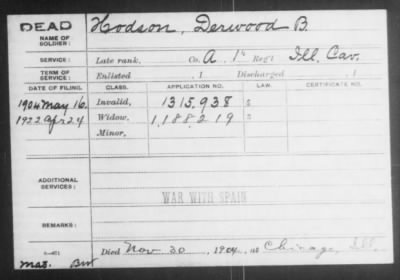 DEAD
NAME OF
SOLDIER:
Hodson, Derwood B.
SERVICE: Late rank, Co. A, 1st Reg't Ill. Cav.
TERM OF
SERVICE: Enlisted , 1 Discharged , 1
DATE OF FILING. CLASS. APPLICATION NO. LAW. CERTIFICATE NO.
1904 May 16. Invalid, 1315,938
1922 Apr 24 Widow, 1,188,219
Minor,
ADDITIONAL
SERVICES:
WAR WITH SPAIN
REMARKS:
Died Nov 30, 1904, at Chicago, Ill.